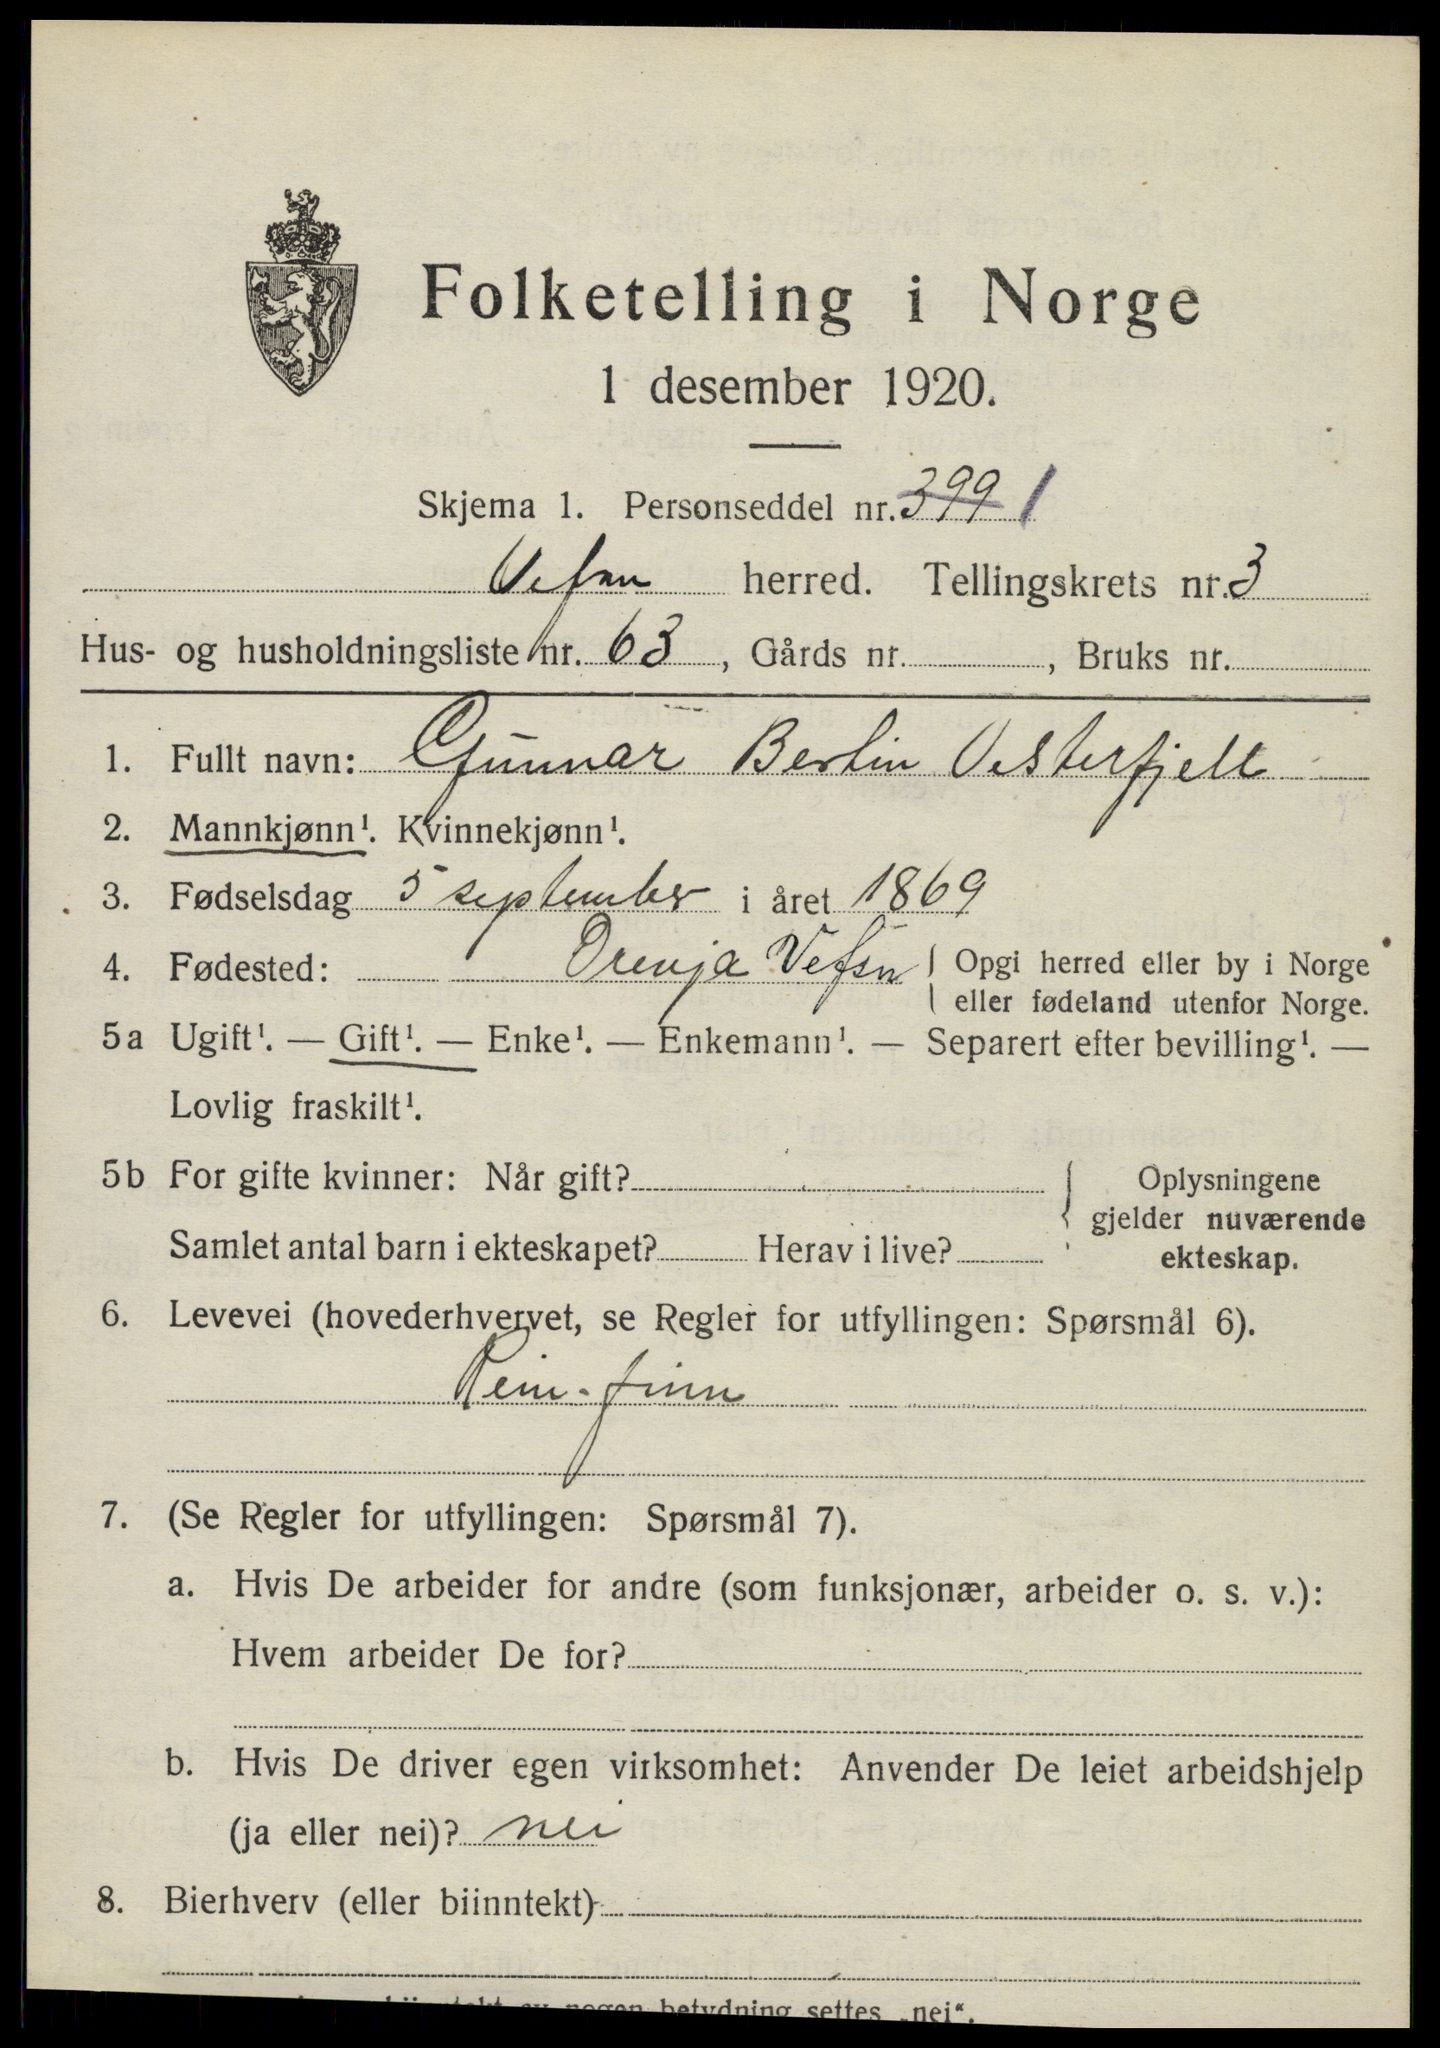 Folketelling i Norge
1 desember 1920.
Skjema 1. Personseddel nr. 399 1
Vefsn herred. Tellingskrets nr. 3
Hus- og husholdningsliste nr. 63, Gårds nr. , Bruks nr.
1. Fullt navn: Gunnar Bertin Vesterfjell
2. Mannkjønn¹. Kvinnekjønn¹.
3. Fødselsdag 5 september i året 1869
4. Fødested: Drevja Vefsn Opgi herred eller by i Norge
eller fødeland utenfor Norge.
5a Ugift¹. — Gift¹. — Enke¹. — Enkemann¹. — Separert efter bevilling¹. —
Lovlig fraskilt¹.
5b For gifte kvinner: Når gift? Oplysningene
gjelder nuværende
Samlet antal barn i ekteskapet? Herav i live? ekteskap.
6. Levevei (hovederhvervet, se Regler for utfyllingen: Spørsmål 6).
Rein-finn
7. (Se Regler for utfyllingen: Spørsmål 7).
a. Hvis De arbeider for andre (som funksjonær, arbeider o. s. v.):
Hvem arbeider De for?
b. Hvis De driver egen virksomhet: Anvender De leiet arbeidshjelp
(ja eller nei)? nei
8. Bierhverv (eller biinntekt)
av nogen betydning settes „nei“.